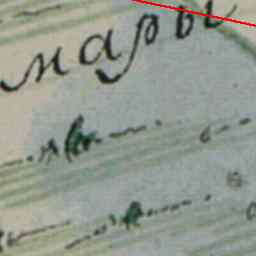 мары